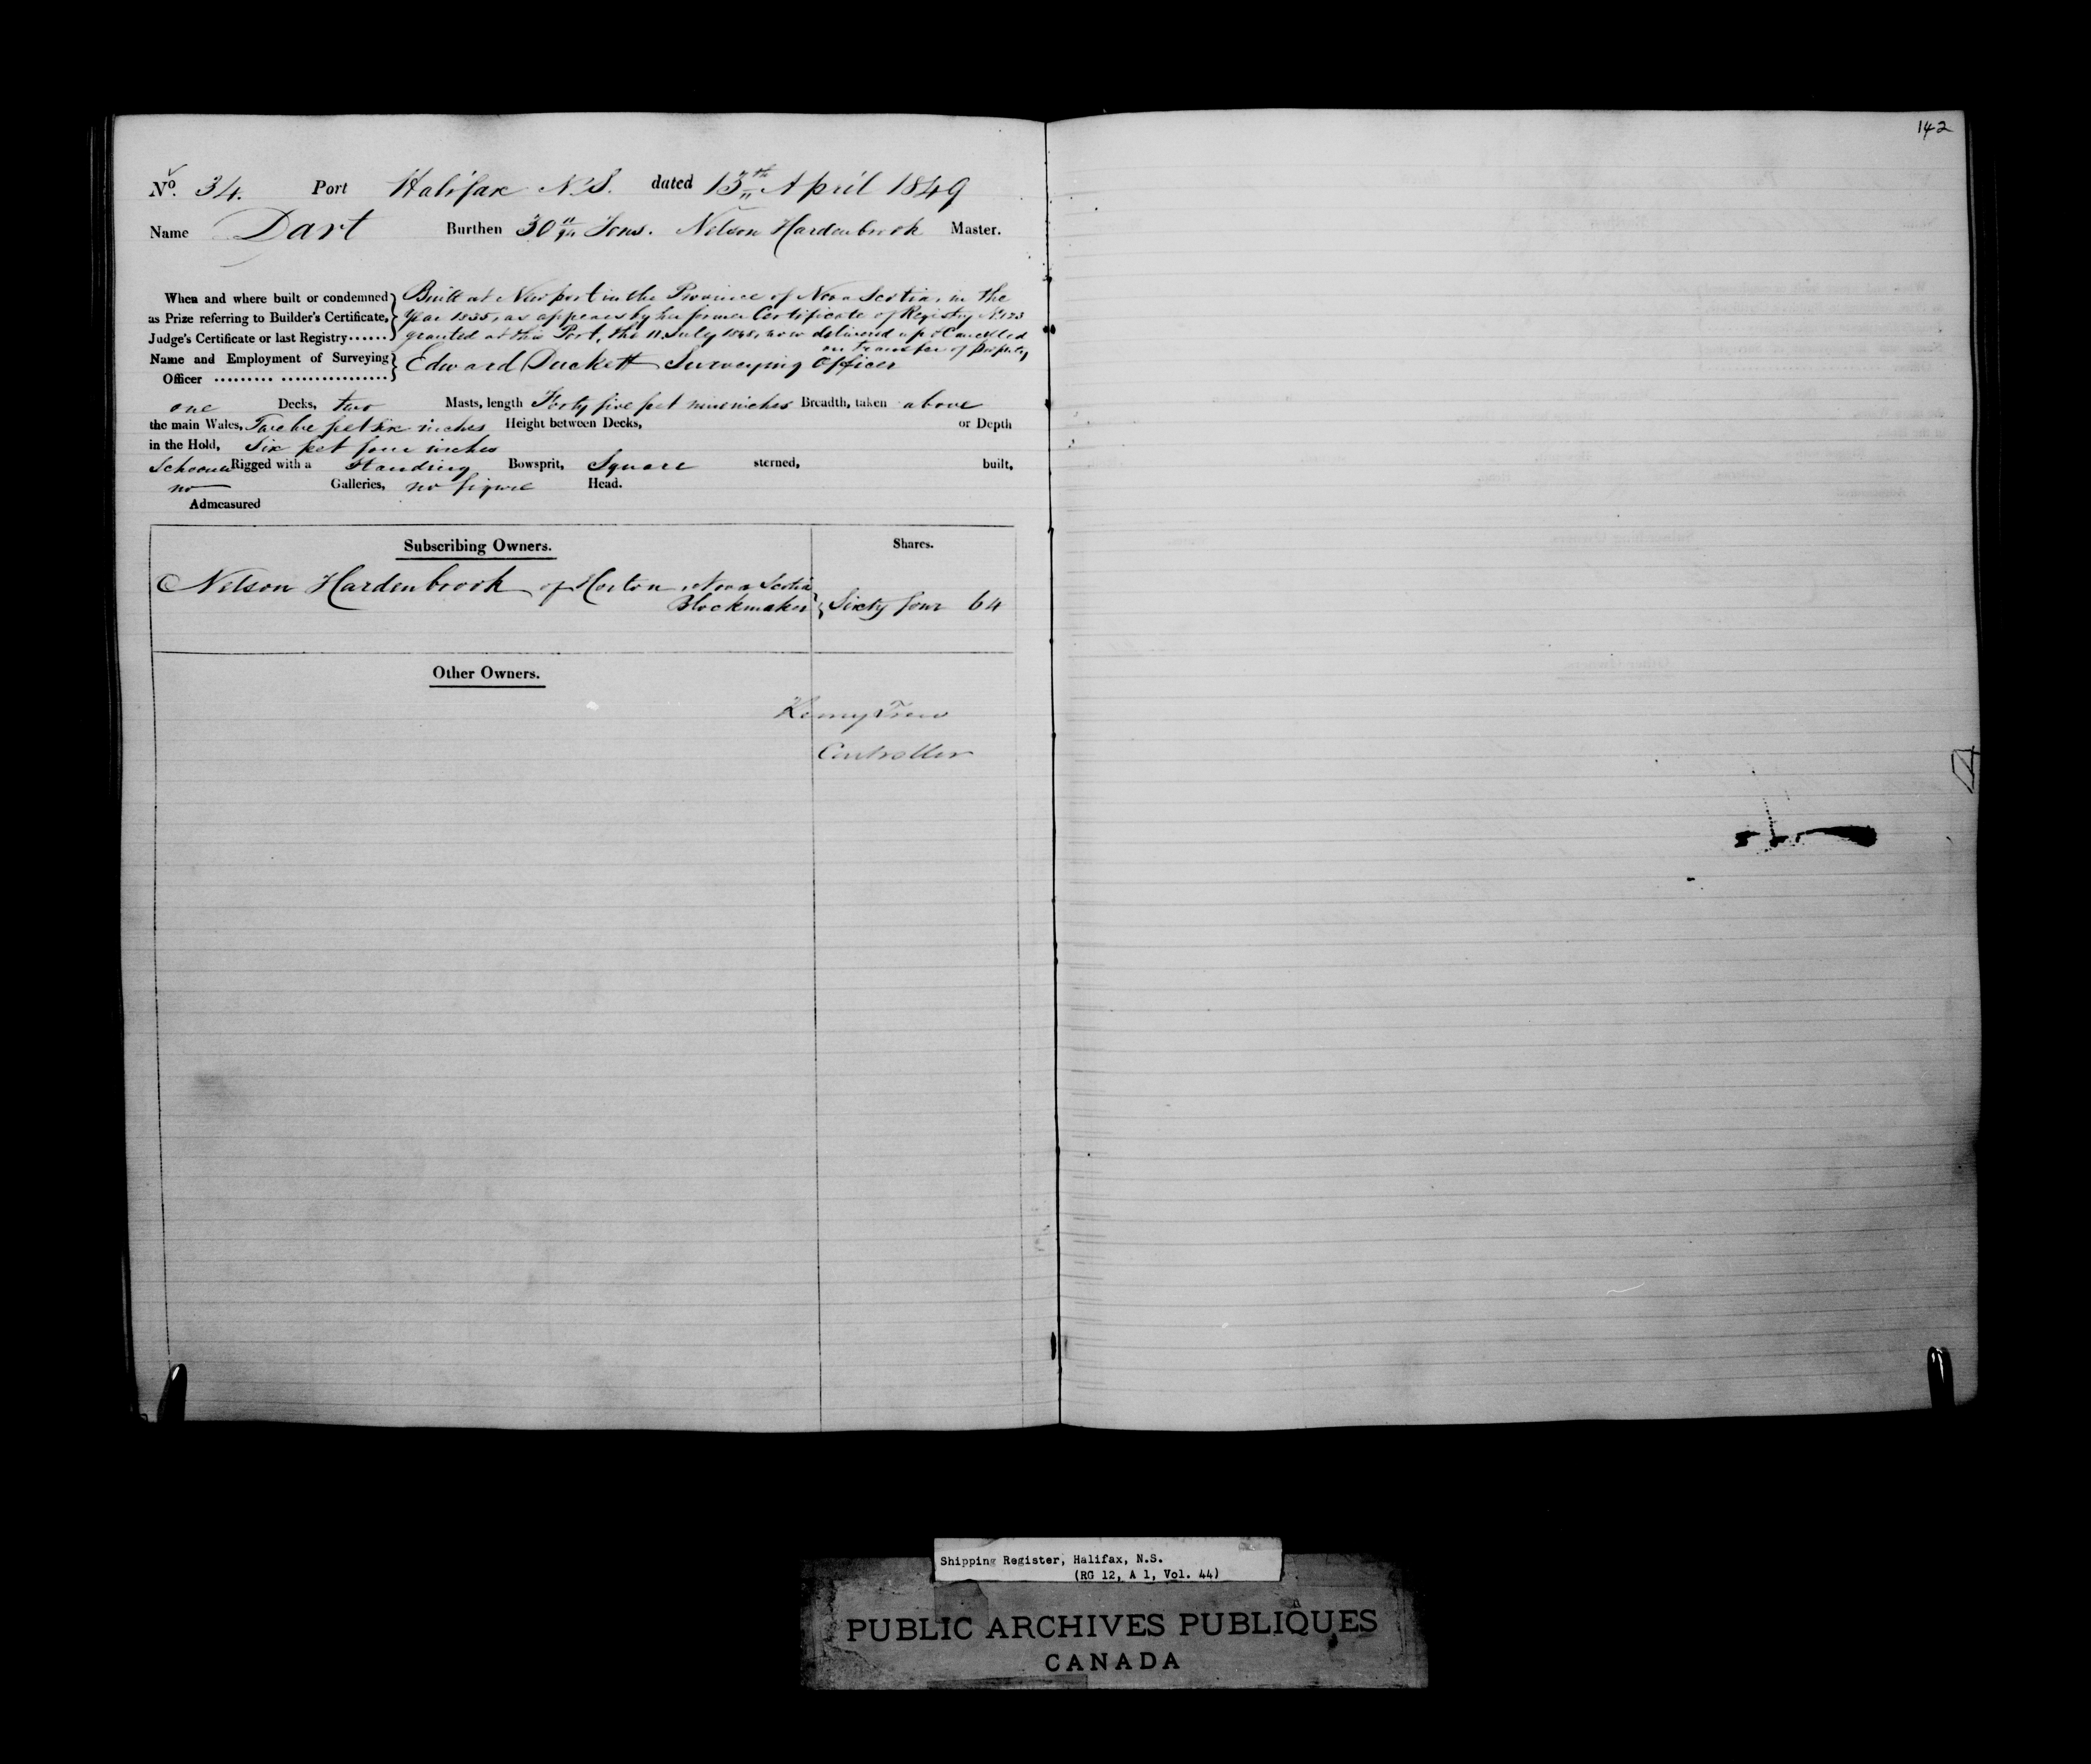 142
No. 34. Port Halifax N.S. dated 13th April 1849
Name Dart Burthen 30 Tons. Nelson Hardenbrook Master.
When and where built or condemned as Prize referring to Builder's Certificate, Judge's Certificate or last Registry......
Built at Newport in the Province of Nova Scotia, in the
Year 1835, as appears by her former Certificate of Registry No. 123
granted at this Port, the 11 July 1848, now delivered up & Cancelled
on transfer of property
Name and Employment of Surveying Officer ......... ................
Edward Duckett Surveying Officer
one Decks, two Masts, length Forty five feet nine inches Breadth, taken above
the main Wales, Twelve feet six inches Height between Decks, or Depth
in the Hold, Six feet four inches
Schooner Rigged with a Standing Bowsprit, Square sterned, built,
no Galleries, no figure Head.
Admeasured
Subscribing Owners. Shares.
Nelson Hardenbrook of Horton Nova Scotia
Blockmaker Sixty four 64
Other Owners.
Henry Trew
Controller
Shipping Register, Halifax, N.S.
(RG 12, A 1, Vol. 44)
PUBLIC ARCHIVES PUBLIQUES
CANADA